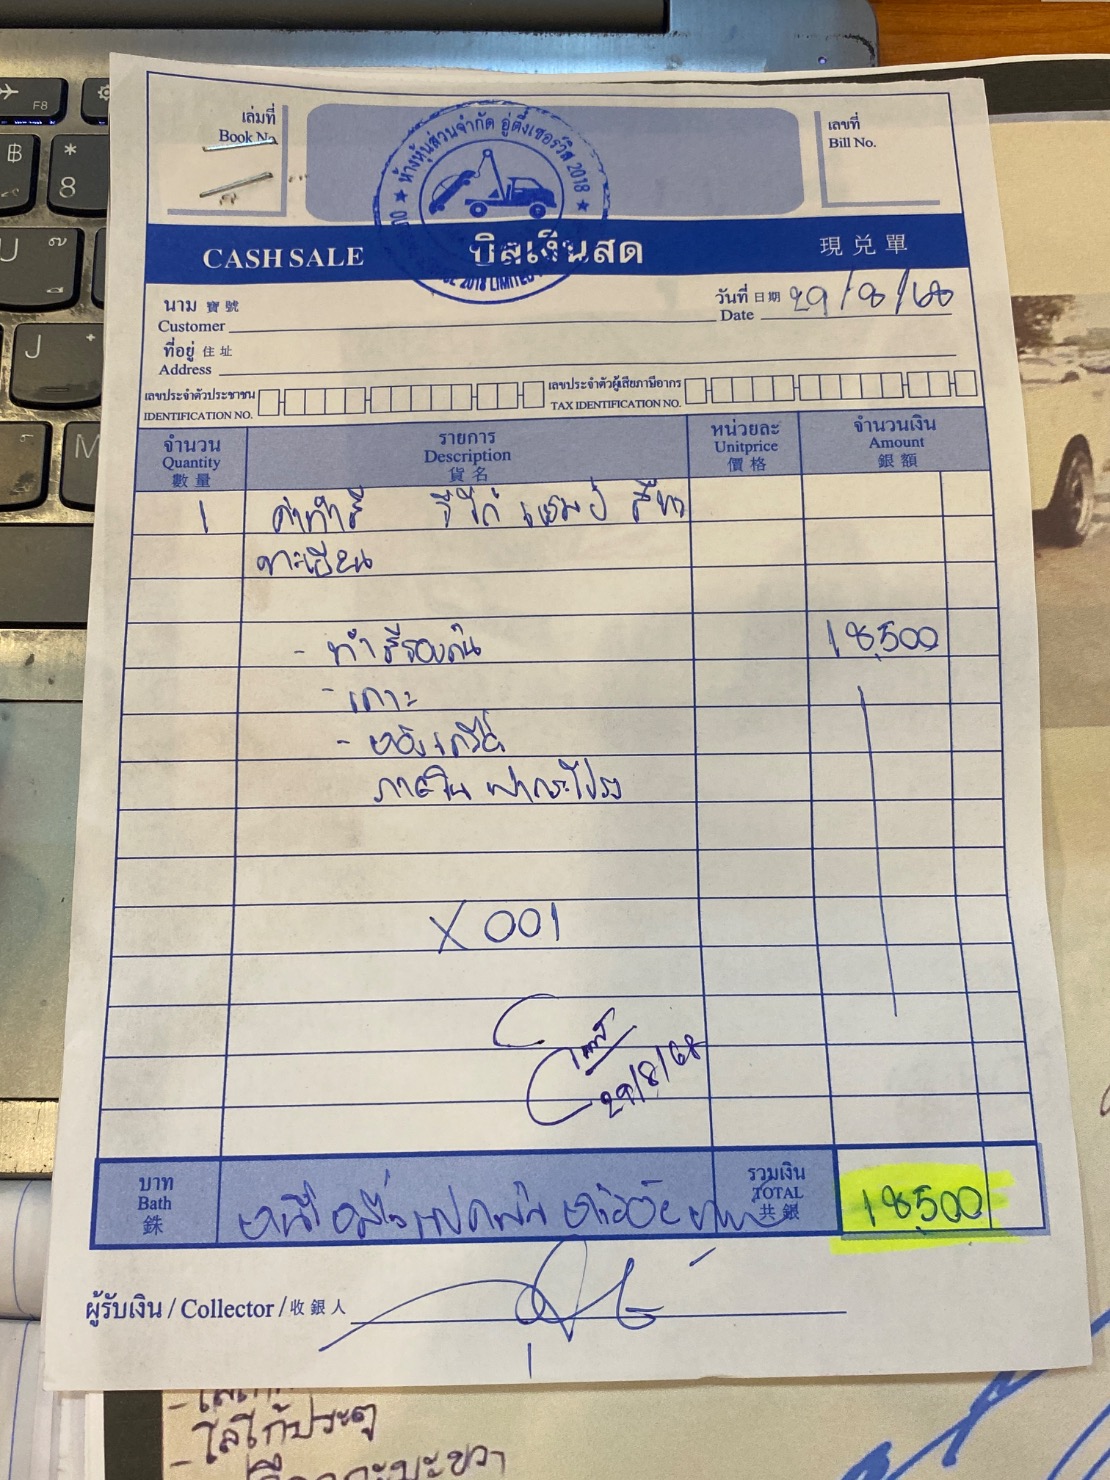 F8
฿
*
8
J
M
เล่มที่
Book No.
ห้างหุ้นส่วนจำกัด อู่ตึ๋งเซอร์วิส 2018
2018 LIMITED
เลขที่
Bill No.
CASH SALE บิลเงินสด 現兑單
นาม 寶號
Customer
วันที่ 日期 29/8/68
Date
ที่อยู่ 住址
Address
เลขประจำตัวประชาชน
IDENTIFICATION NO.
เลขประจำตัวผู้เสียภาษีอากร
TAX IDENTIFICATION NO.
จำนวน รายการ หน่วยละ จำนวนเงิน
Quantity Description Unitprice Amount
數量 貨名 價格 銀額
1 ค่าทำสี วีโก้ แชมป์ สีขาว
ทะเบียน
- ทำสีรองพื้น 18,500
- เคาะ
- หลังแคร์
ภายใน ฝากระโปรง
X 001
29/8/68
บาท
Bath
銖
หนึ่งหมื่นแปดพันห้าร้อยบาท
รวมเงิน
TOTAL
共銀
18,500
ผู้รับเงิน / Collector / 收銀人
- ใส่ไก้ประตู
กะบะขวา